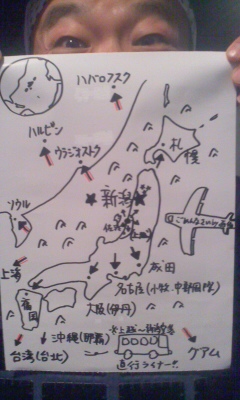 ハバロフスク
ハルビン
ウラジオストク
札
幌
新潟
佐渡
上越
ソウル
上海
福岡
成田
名古屋(小牧、中部国際)
大阪(伊丹)
沖縄(那覇)
台湾(台北)
グアム
※上越〜新潟空港
直行ライナー!!